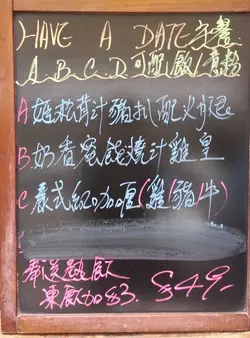 HAVE A DATE 字餐
A.B.C.D.可配飯/意粉
A 姬松茸汁豬扒配火腿
B. 奶香蜜餞燒汁雞皇
C. 意式紅咖喱(雞/豬/牛)
熱飲
凍飲加$3. $49-